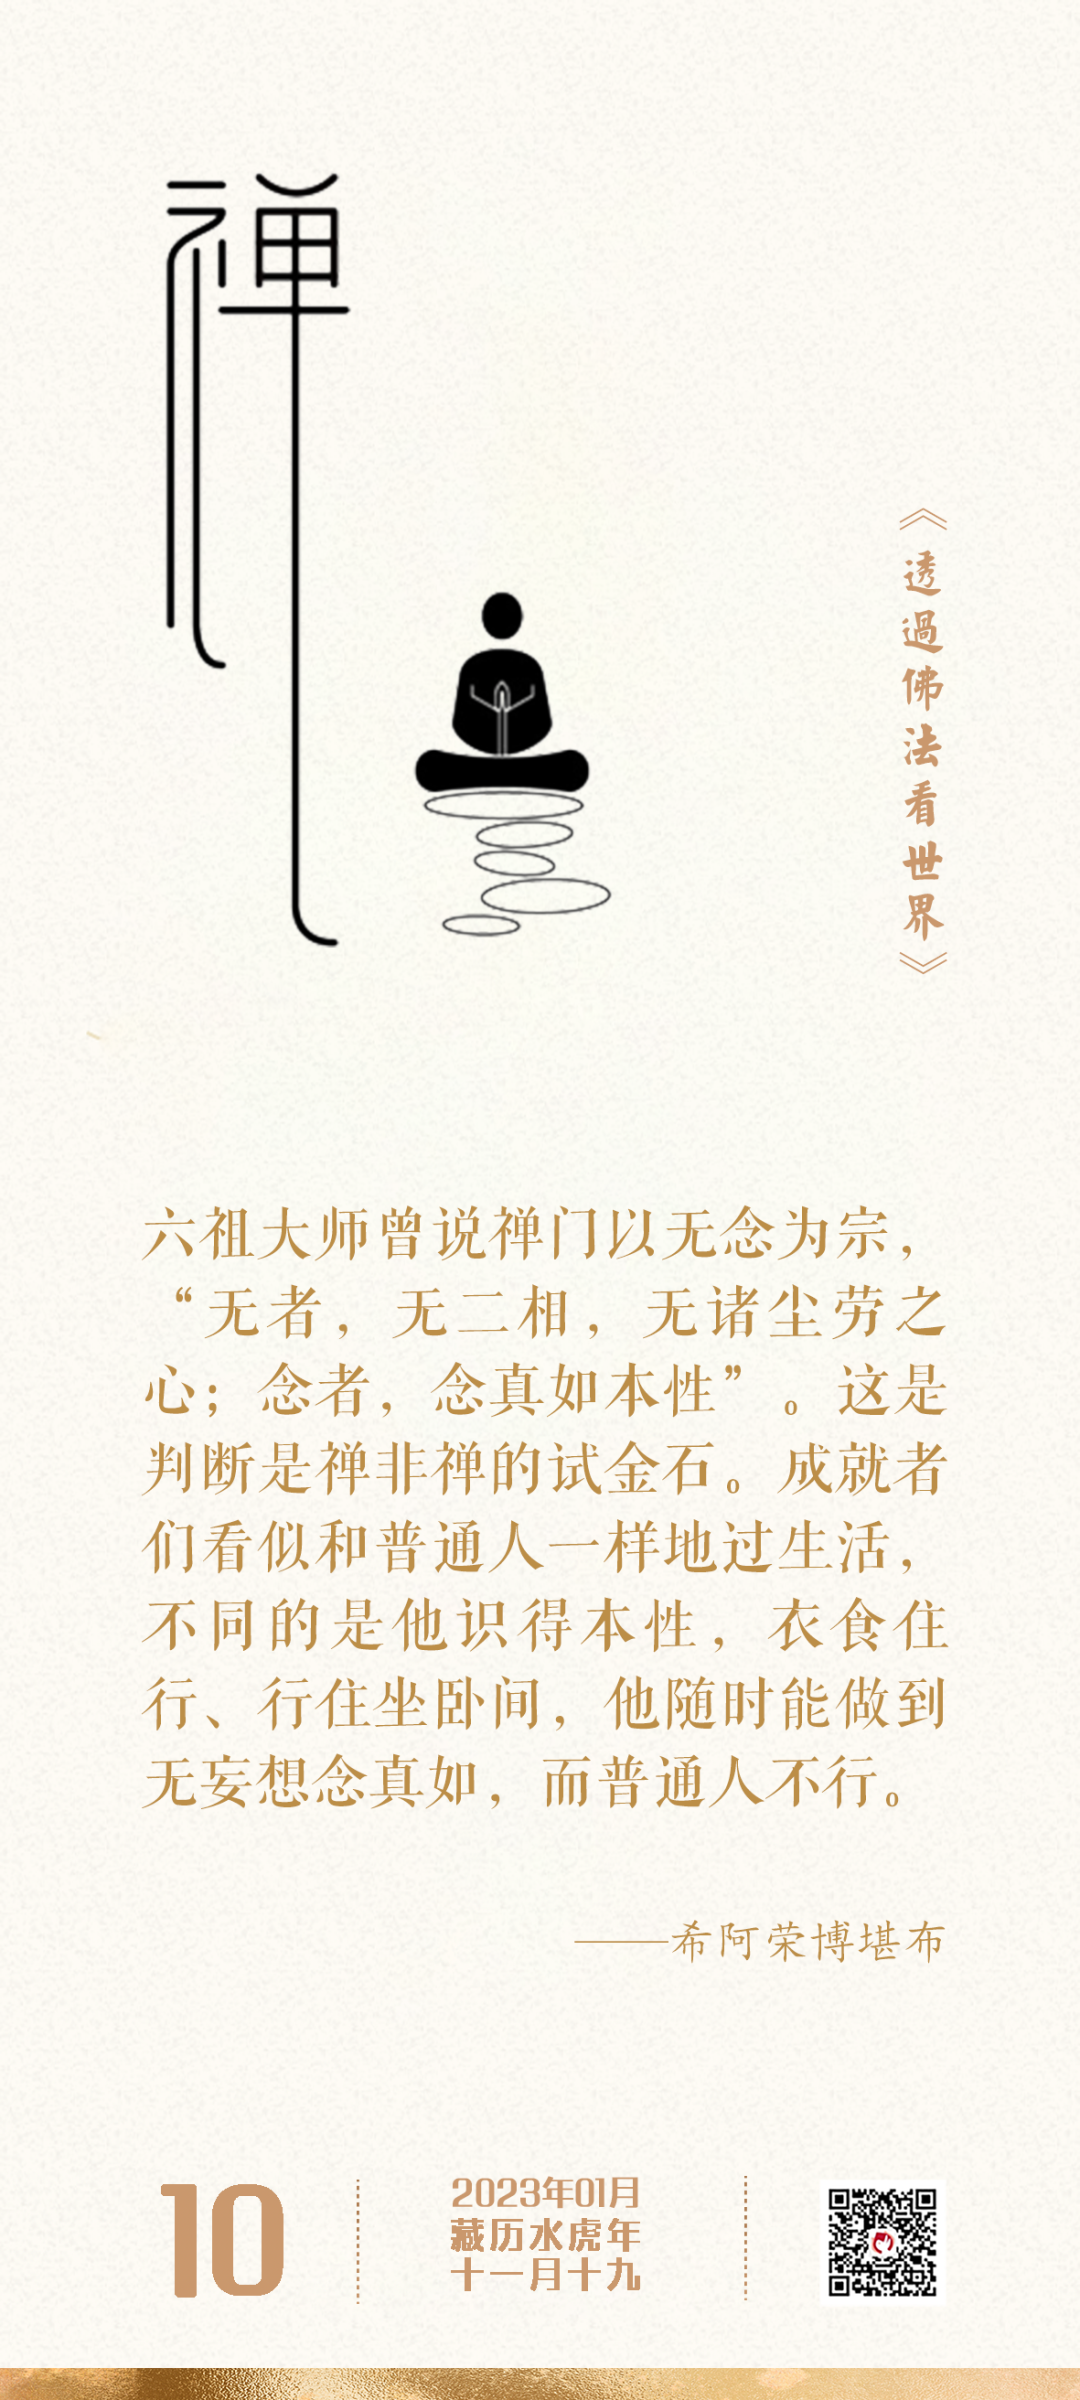 禅
《透過佛法看世界》
六祖大师曾说禅门以无念为宗，
“无者，无二相，无诸尘劳之
心；念者，念真如本性”。这是
判断是禅非禅的试金石。成就者
们看似和普通人一样地过生活，
不同的是他识得本性，衣食住
行、行住坐卧间，他随时能做到
无妄想念真如，而普通人不行。
——希阿荣博堪布
10
2023年01月
藏历水虎年
十一月十九